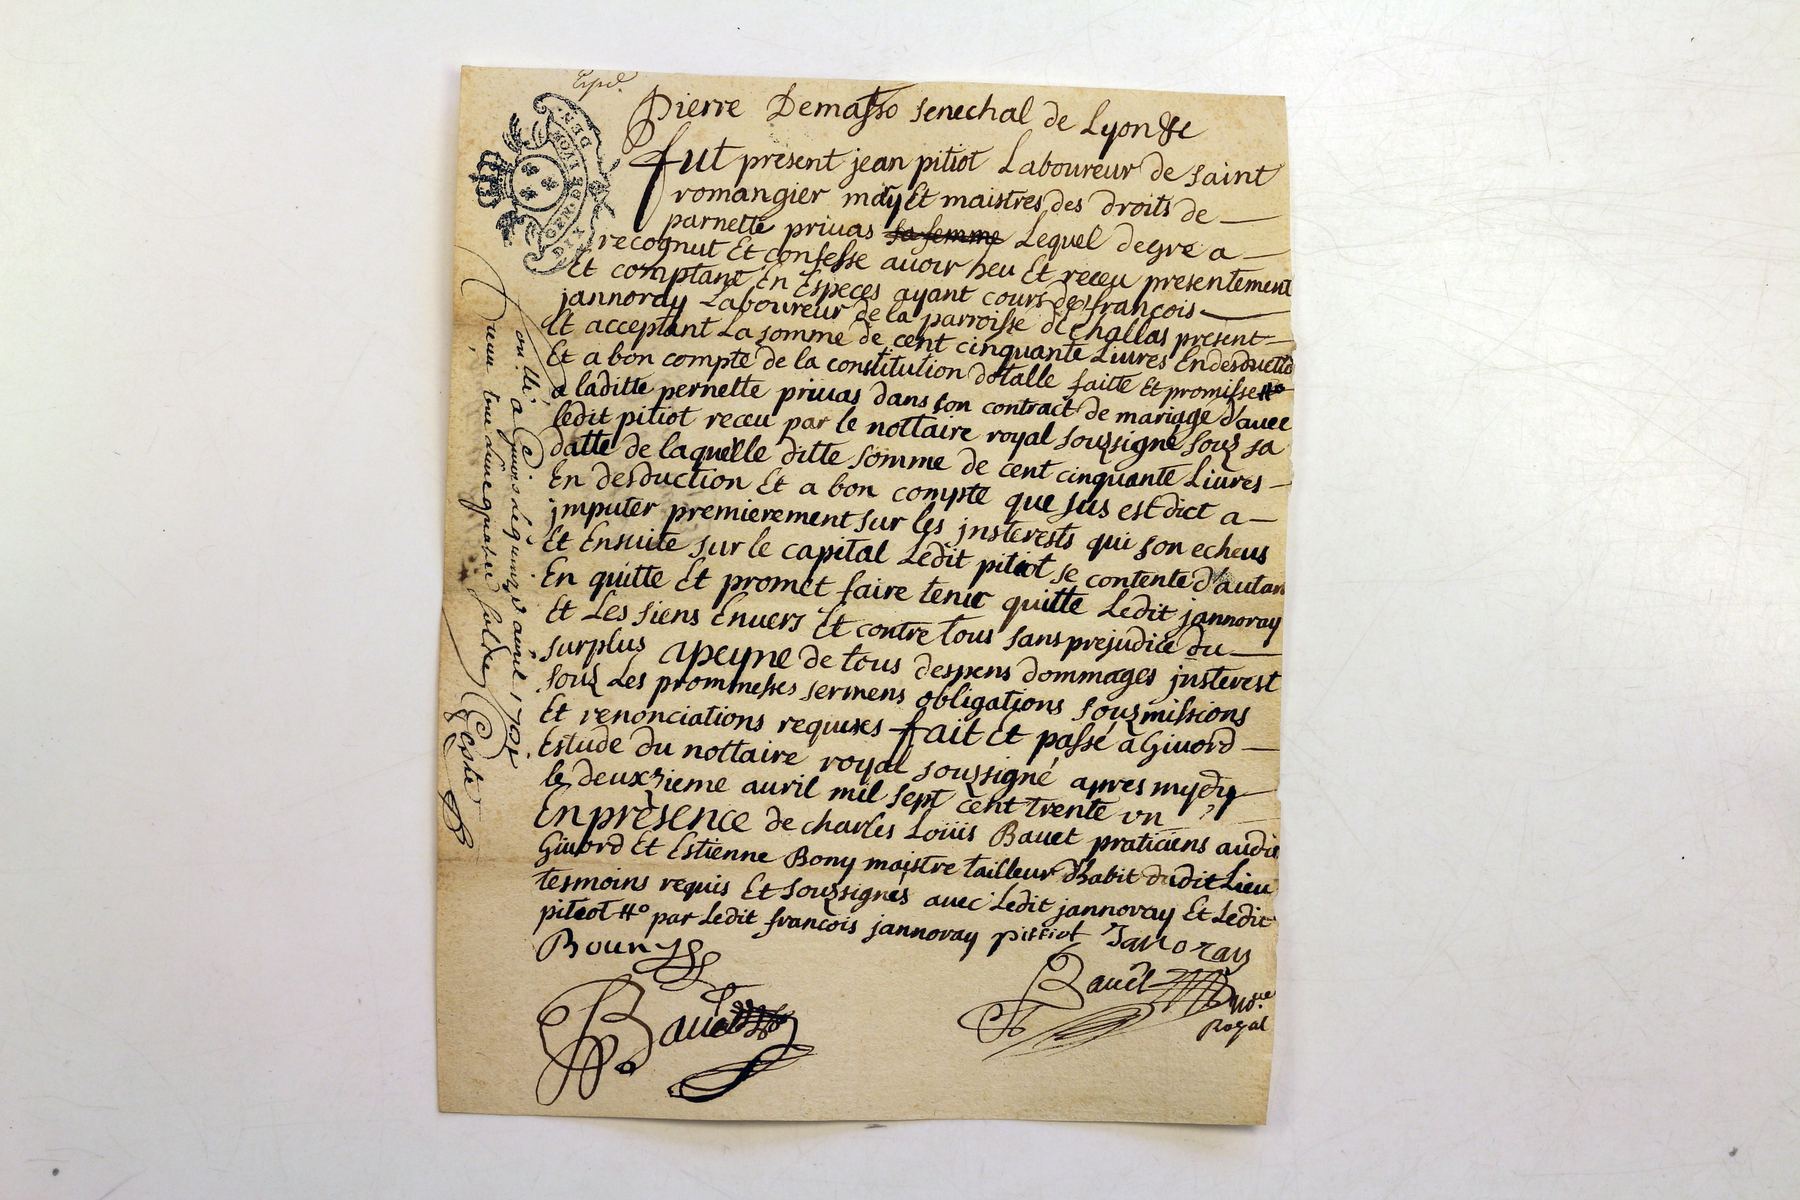 Expd.
Pierre Demasso senechal de Lyon
fut present jean pitiot Laboureur de saint
romangier mary Et maistres des droits de
parnette priuas sa femme Lequel degre a
recognut Et confesse auoir heu Et receu presentement
Et comptant En Especes ayant cours de françois
jannoray Laboureur de la parroisse d'Echallas present
Et acceptant La somme de cent cinquante Liures
Et a bon compte de la constitution dotalle faitte Et promisse
a laditte pernette priuas dans son contract de mariage d'auec
ledit pitiot receu par le nottaire royal souzsigné souz sa
datte de laquelle ditte somme de cent cinquante Liures
En desduction Et a bon compte que sus est dict a
jmputer premierement sur les jnsterests qui son echeus
Et Ensuite sur le capital Ledit pitiot se contente d'autan
En quitte Et promet faire tenir quitte Ledit jannoray
Et Les siens Enuers Et contre tous sans prejudice du
surplus apeyne de tous despens dommages justerest
souz Les prommesses sermens obligations souzmissions
Et renonciations requises fait Et passé a Giuord
Estude du nottaire royal souzsigné apres mydy
le deuxzieme auril mil sept cent trente un
En presence de charles Loüis Bauet praticiens audit
Giuord Et Estienne Bony maistre tailleur d'habit dudit Lieu
tesmoins requis Et souzsignés auec Ledit jannoray Et Ledit
pitiot ##o par Ledit françois jannoray pittiot Janoray
Bouny
Bauet
Bauet
Royal
a Giuors Le quinze auril 1731
Receu une Liure quatre sols
Coste
GEN. DE LYON